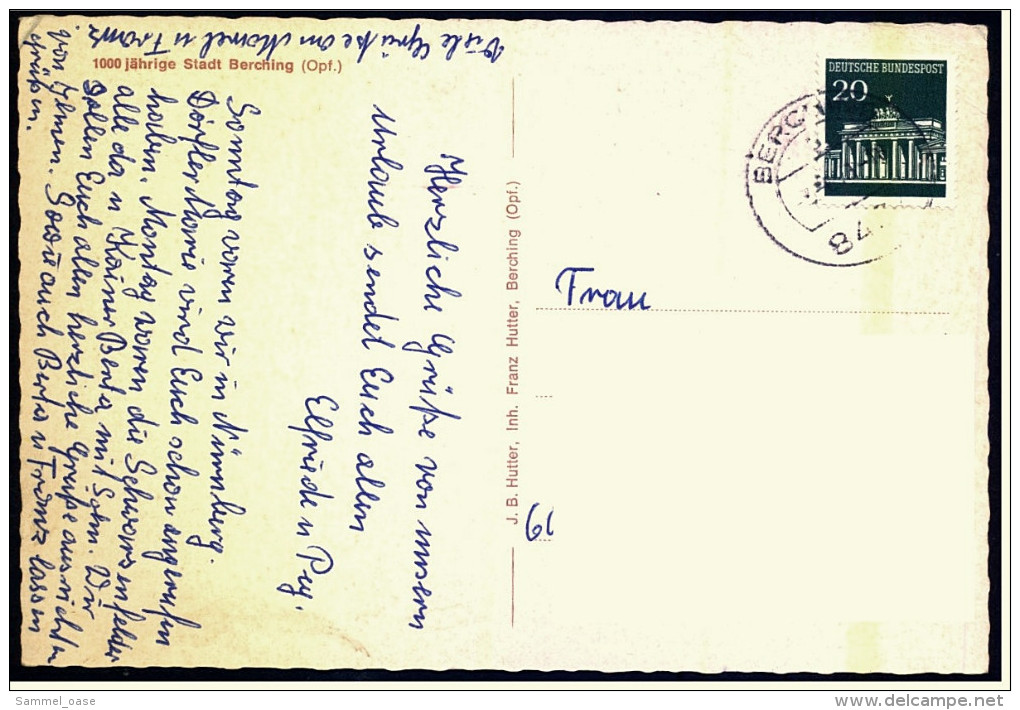 1000 jährige Stadt Berching (Opf.)
Viele Grüße an Monel u Franz
Herzliche Grüße von unsern
Urlaub sendet Euch allen
Elfriede u
Sonntag waren wir in Nürnberg.
Dörfler Marie wird Euch schon angerufen
haben. Montag waren die Schwarzenfelder
alle da u Kainer Berta mit Sohn. Wir
sollen Euch allen herzliche Grüße ausrichten
von Ihnen. Sowie auch Berta u Franz lassen
grüßen.
J. B. Hutter, Inh. Franz Hutter, Berching (Opf.)
DEUTSCHE BUNDESPOST
20
BERCH
84
Frau
61
Sammel_oase
www.delcampe.net